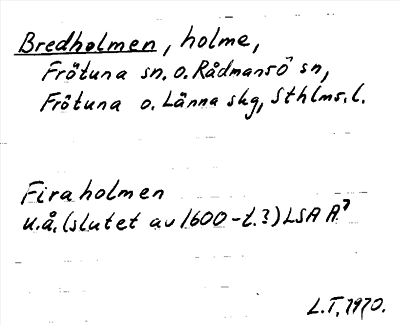 Bredholmen, holme,
Frötuna sn. o. Rådmansö sn,
Frötuna o. Länna skg, Sthlms. l.
Firaholmen
u.å. (slutet av 1600-t.?) LSA A⁷
L.T. 1970.